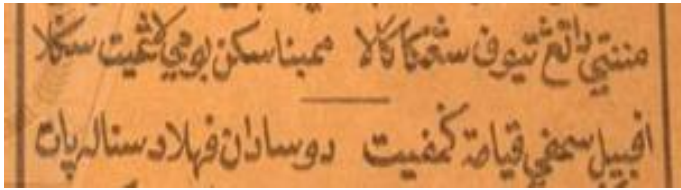 مننتي داتڠ تيوف سڠكاكالا ممبناسكن بومي لاڠيت سݢلا
افبيل سمفي قيامة كمفيت دوسا دان فهلا دسناله ڽات